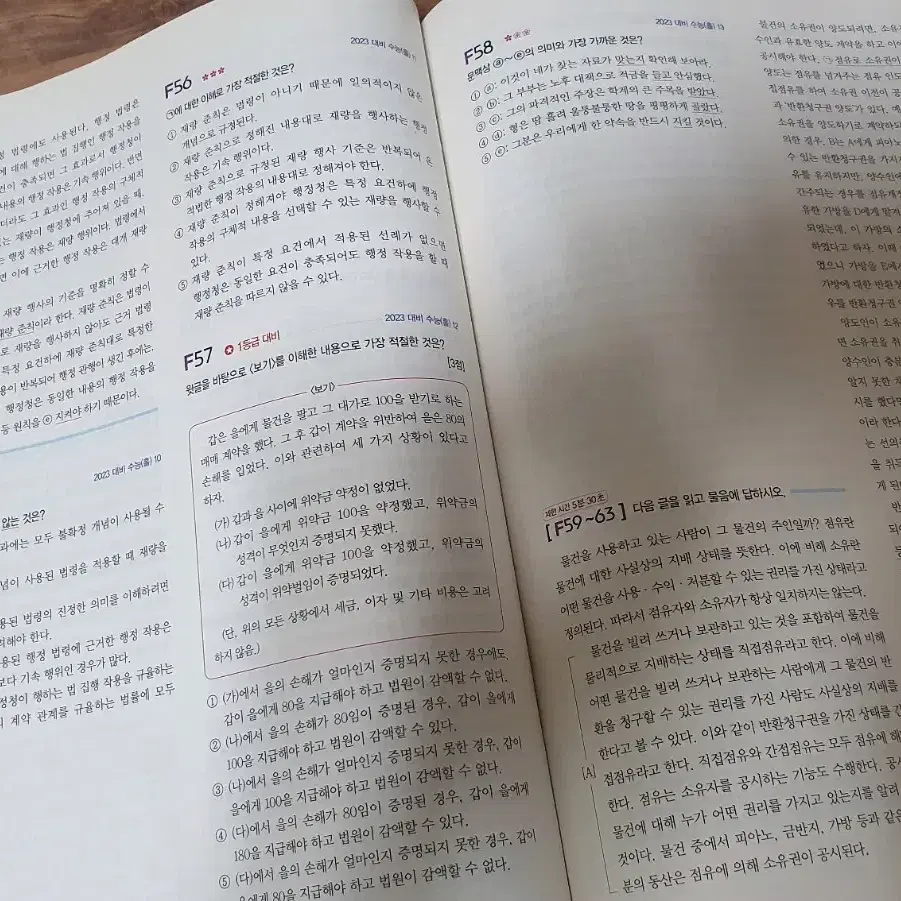 법령에도 사용된다. 행정 법령은
에 대해 행하는 법 집행인 행정 작용을
건이 충족되면 그 효과로서 행정청이
내용의 행정 작용은 기속 행위이다. 반면
더라도 그 효과인 행정 작용의 구체적
는 재량이 행정청에 주어져 있을 때,
는 행정 작용은 재량 행위이다. 법령에서
면 이에 근거한 행정 작용은 대개 재량
재량 행사의 기준을 명확히 정할 수
재량 준칙이라 한다. 재량 준칙은 법령이
로 재량을 행사하지 않아도 근거 법령
특정 요건하에 재량 준칙대로 특정한
용이 반복되어 행정 관행이 생긴 후에는,
행정청은 동일한 내용의 행정 작용을
등 원칙을 ⓔ 지켜야 하기 때문이다.
2023 대비 수능(홀) 10
않는 것은?
과에는 모두 불확정 개념이 사용될 수
념이 사용된 법령을 적용할 때 재량을
용된 법령의 진정한 의미를 이해하려면
려해야 한다.
용된 행정 법령에 근거한 행정 작용은
보다 기속 행위인 경우가 많다.
정청이 행하는 법 집행 작용을 규율하는
의 계약 관계를 규율하는 법률에 모두
2023 대비 수능(홀) 11
F56 ★★★
㉠에 대한 이해로 가장 적절한 것은?
① 재량 준칙은 법령이 아니기 때문에 일의적이지 않은
개념으로 규정된다.
② 재량 준칙으로 정해진 내용대로 재량을 행사하는 행정
작용은 기속 행위이다.
③ 재량 준칙으로 규정된 재량 행사 기준은 반복되어 온
적법한 행정 작용의 내용대로 정해져야 한다.
④ 재량 준칙이 정해져야 행정청은 특정 요건하에 행정
작용의 구체적 내용을 선택할 수 있는 재량을 행사할 수
있다.
⑤ 재량 준칙이 특정 요건에서 적용된 선례가 없으면
행정청은 동일한 요건이 충족되어도 행정 작용을 할 때
재량 준칙을 따르지 않을 수 있다.
2023 대비 수능(홀) 12
F57 ✪ 1등급 대비
윗글을 바탕으로 〈보기〉를 이해한 내용으로 가장 적절한 것은?
[3점]
〈보기〉
갑은 을에게 물건을 팔고 그 대가로 100을 받기로 하는
매매 계약을 했다. 그 후 갑이 계약을 위반하여 을은 80의
손해를 입었다. 이와 관련하여 세 가지 상황이 있다고
하자.
(가) 갑과 을 사이에 위약금 약정이 없었다.
(나) 갑이 을에게 위약금 100을 약정했고, 위약금의
성격이 무엇인지 증명되지 못했다.
(다) 갑이 을에게 위약금 100을 약정했고, 위약금의
성격이 위약벌임이 증명되었다.
(단, 위의 모든 상황에서 세금, 이자 및 기타 비용은 고려
하지 않음.)
① (가)에서 을의 손해가 얼마인지 증명되지 못한 경우에도,
갑이 을에게 80을 지급해야 하고 법원이 감액할 수 없다.
② (나)에서 을의 손해가 80임이 증명된 경우, 갑이 을에게
100을 지급해야 하고 법원이 감액할 수 있다.
③ (나)에서 을의 손해가 얼마인지 증명되지 못한 경우, 갑이
을에게 100을 지급해야 하고 법원이 감액할 수 없다.
④ (다)에서 을의 손해가 80임이 증명된 경우, 갑이 을에게
180을 지급해야 하고 법원이 감액할 수 있다.
⑤ (다)에서 을의 손해가 얼마인지 증명되지 못한 경우, 갑이
을에게 80을 지급해야 하고 법원이 감액할 수 있다.
2023 대비 수능(홀) 13
F58 ★
문맥상 ⓐ~ⓔ의 의미와 가장 가까운 것은?
① ⓐ: 이것이 네가 찾는 자료가 맞는지 확인해 보아라.
② ⓑ: 그 부부는 노후 대책으로 적금을 들고 안심했다.
③ ⓒ: 그의 파격적인 주장은 학계의 큰 주목을 받았다.
④ ⓓ: 형은 땀 흘려 울퉁불퉁한 땅을 평평하게 골랐다.
⑤ ⓔ: 그분은 우리에게 한 약속을 반드시 지킬 것이다.
제한 시간 5분 30초
[F59~63] 다음 글을 읽고 물음에 답하시오.
물건을 사용하고 있는 사람이 그 물건의 주인일까? 점유란
물건에 대한 사실상의 지배 상태를 뜻한다. 이에 비해 소유란
어떤 물건을 사용·수익·처분할 수 있는 권리를 가진 상태라고
정의된다. 따라서 점유자와 소유자가 항상 일치하지는 않는다.
물건을 빌려 쓰거나 보관하고 있는 것을 포함하여 물건을
물리적으로 지배하는 상태를 직접점유라고 한다. 이에 비해
어떤 물건을 빌려 쓰거나 보관하는 사람에게 그 물건의 반
환을 청구할 수 있는 권리를 가진 사람도 사실상의 지배를
한다고 볼 수 있다. 이와 같이 반환청구권을 가진 상태를 간
[A] 접점유라고 한다. 직접점유와 간접점유는 모두 점유에 해
한다. 점유는 소유자를 공시하는 기능도 수행한다. 공시
물건에 대해 누가 어떤 권리를 가지고 있는지를 알려
것이다. 물건 중에서 피아노, 금반지, 가방 등과 같은
분의 동산은 점유에 의해 소유권이 공시된다.
물건의 소유권이 양도되려면, 소유
수인과 유효한 양도 계약을 하고 이에
공시해야 한다. ㉠ 점유로 소유권이
양도는 점유를 넘겨주는 점유 인도
접점유를 하여 소유권 이전이 공
과 '반환청구권 양도'가 있다. 예
소유권을 양도하기로 계약하되
의한 경우, B는 A에게 피아노
수 있는 반환청구권을 가지
유를 유지하지만, 양수인에
간주되는 경우를 점유개정
유한 가방을 D에게 맡겨
되었는데, 이 가방의 소
하였다고 하자. 이때
였으니 가방을 E에게
가방에 대한 반환청
우를 반환청구권
양도인이 소유
면 소유권을 취
양수인이 충분
알지 못한 채
시를 했다면
이라 한다
는 선의
을 취득
게 된
되